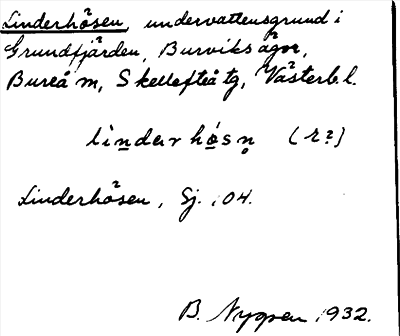 Linderhåsen, undervattensgrund i
Grundfjärden, Burviks ägor,
Bureå sn, Skellefteå tg, Västerb. l.
li̲nder hǻ̲sn̥ (r?)
Linderhåsen, Sj. 104.
B. Nygren 1932.